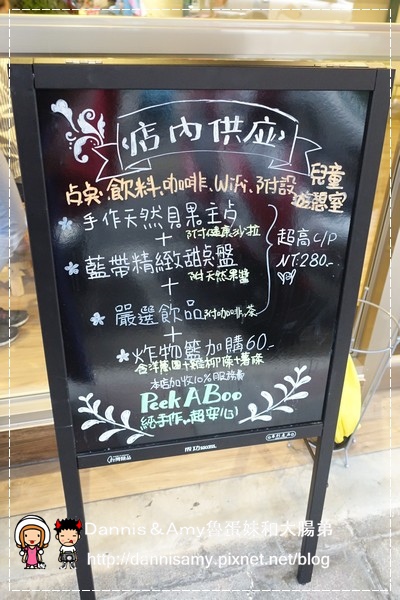 店內供應
点心、飲料、咖啡、WiFi、附設兒童遊憩室
手作天然貝果主点
附健康沙拉
+
藍帶精緻甜点盤
附天然果醬
+
嚴選飲品 附咖啡、茶
超高C/P
NT:280-
+
炸物籃加購60-
含洋蔥圈+雞柳條+薯條
本店加收10%服務費
Peek A Boo
純手作、超安心!
Dannis & Amy魯蛋妹和大腸弟
http://dannisamy.pixnet.net/blog